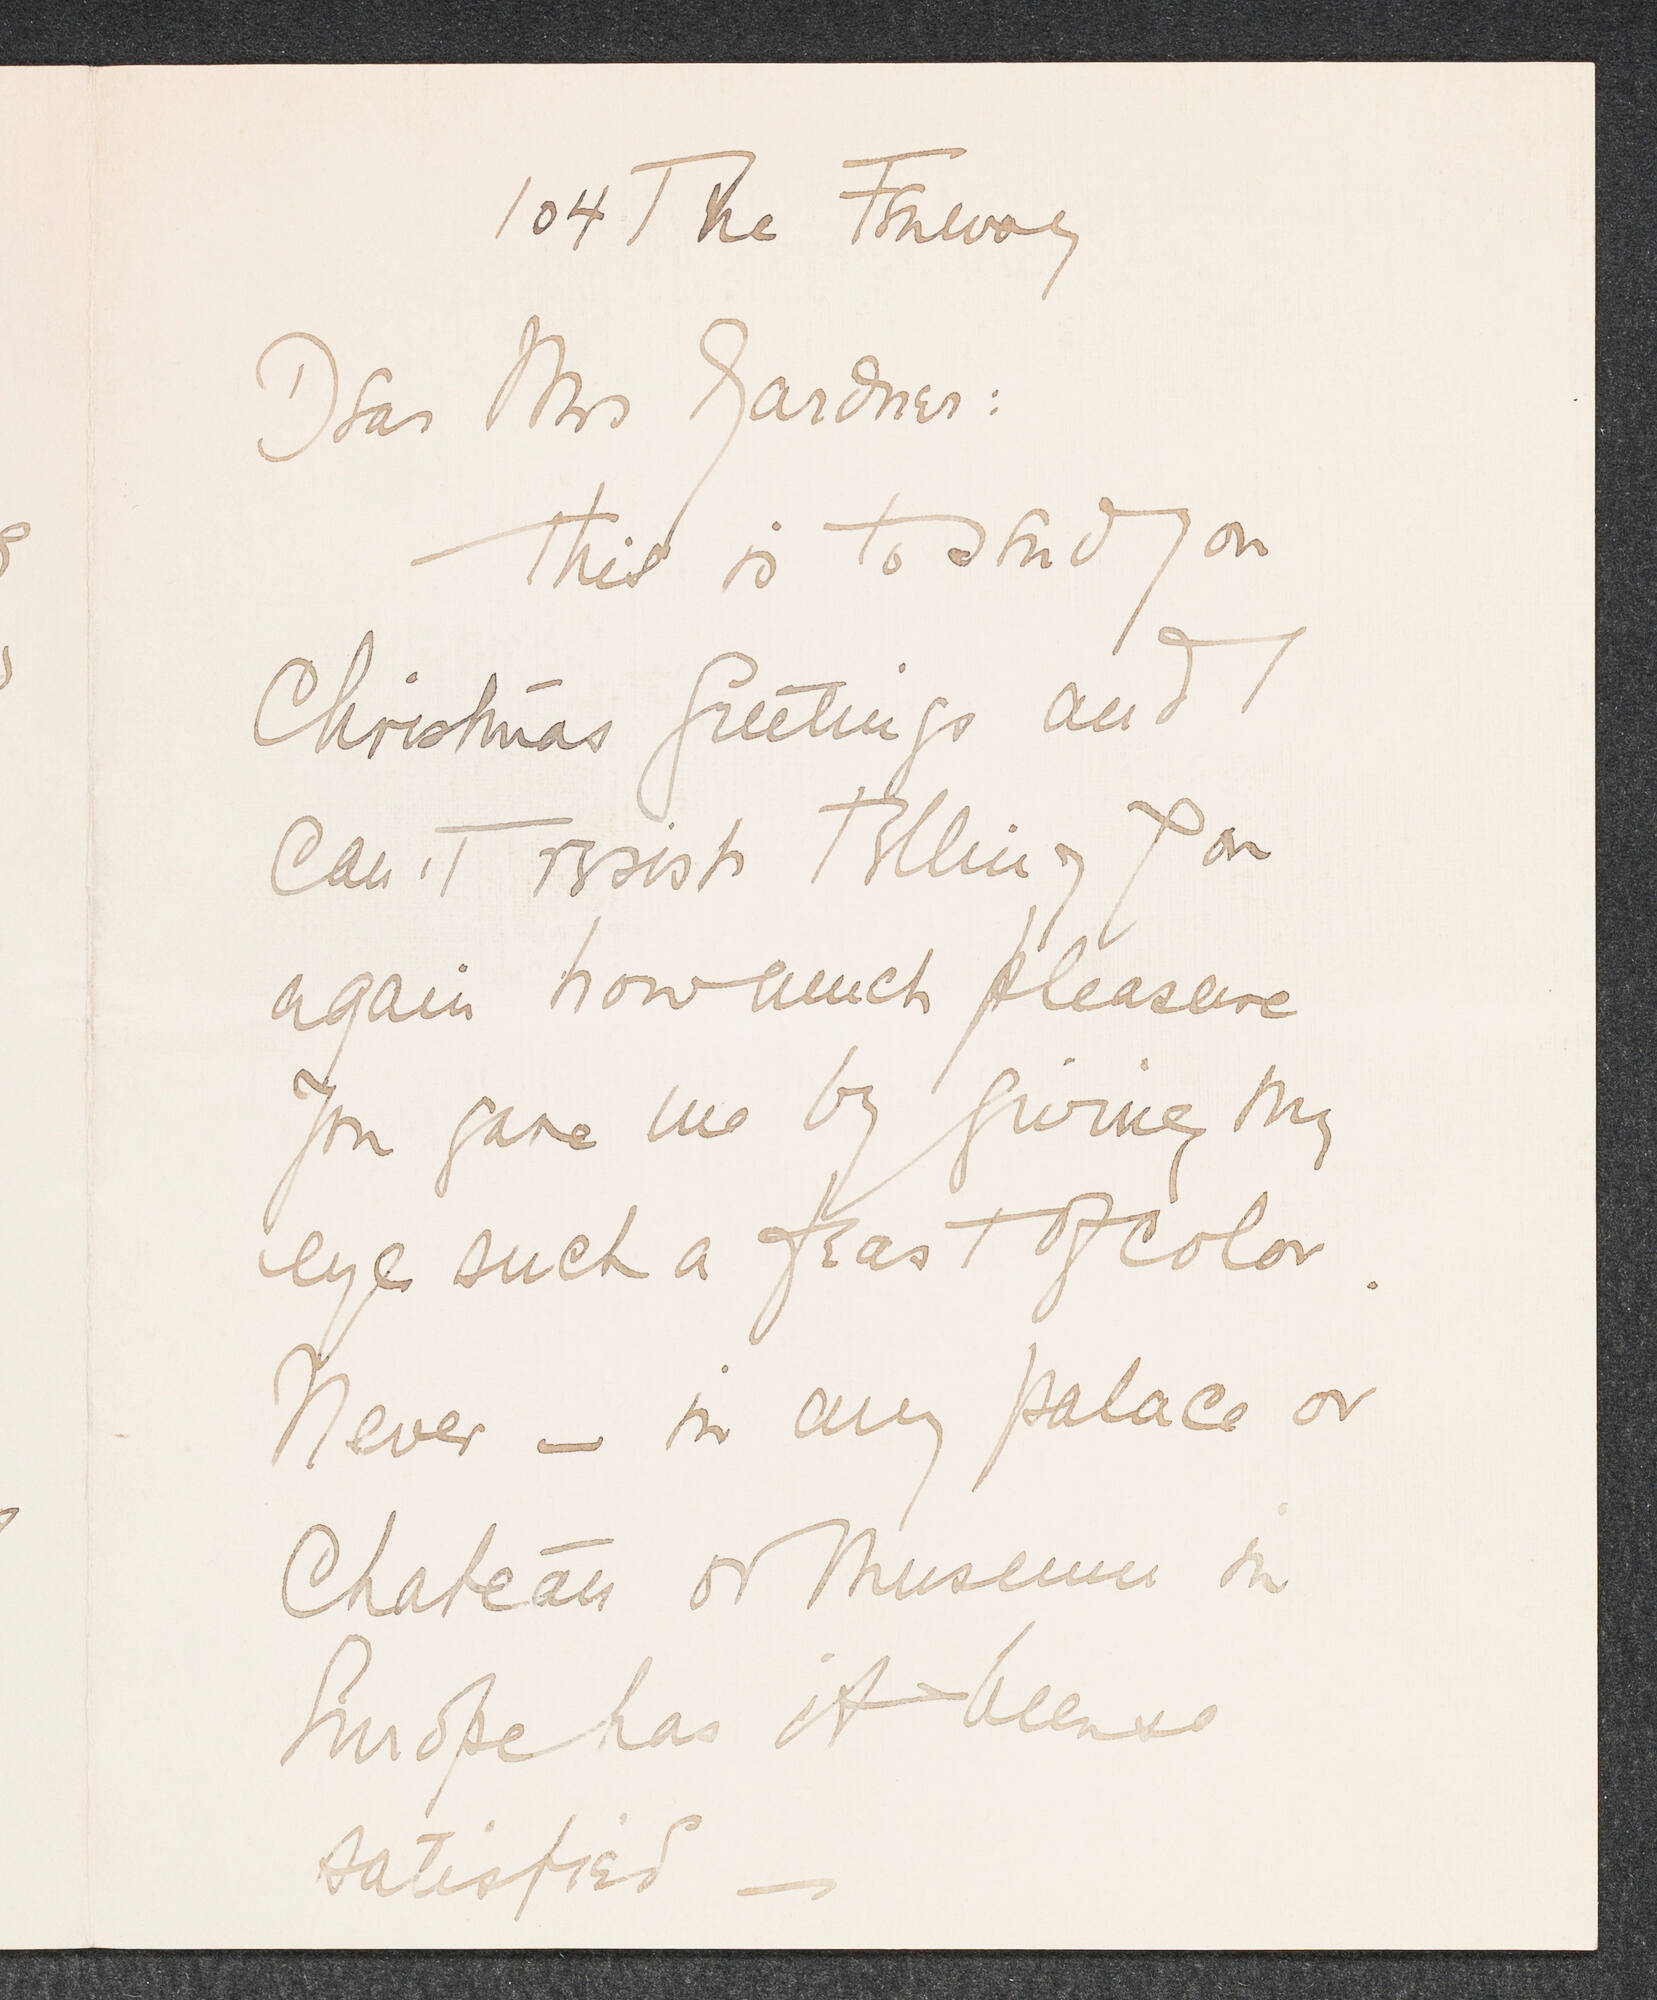 104 The Fenway
Dear Mrs Gardner:
This is to send you
Christmas greetings and I
can't resist telling you
again how much pleasure
you gave me by giving my
eye such a feast of color.
Never — in any palace or
Chateau or Museum in
Europe has it been so
satisfied —